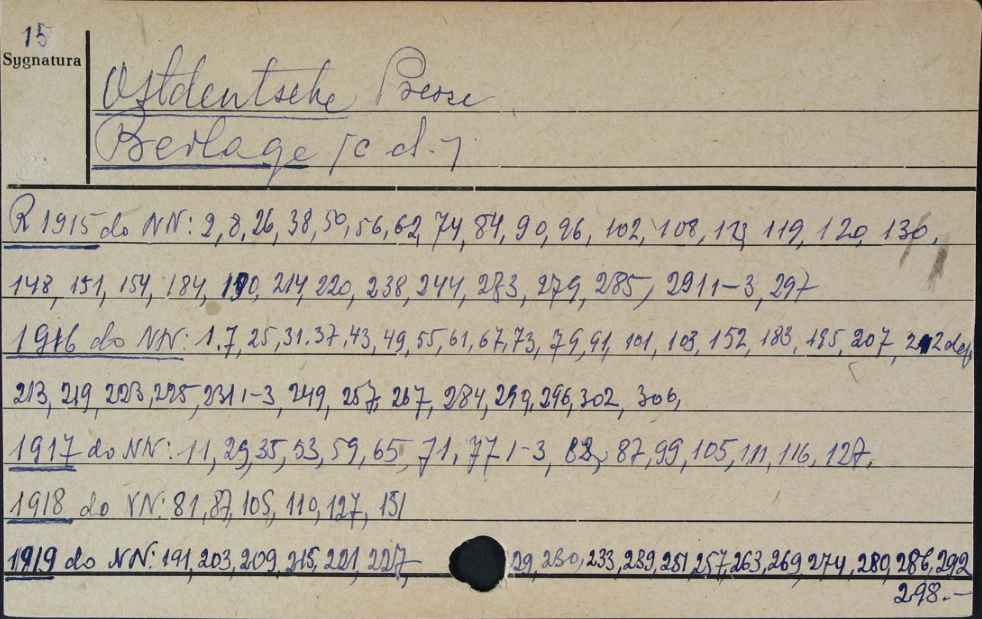 15
Sygnatura
Ostdeutsche Presse
Beilage /c d.-/
R 1915 do NN: 2, 8, 26, 38, 50, 56, 62, 74, 84, 90, 96, 102, 108, 113, 119, 120, 130,
148, 151, 154, 184, 190, 214, 220, 238, 244, 283, 279, 285, 291 1-3, 297
1916 do NN: 1.7, 25, 31.37.43, 49, 55, 61, 67,73, 79,91, 101, 103, 152, 183, 195, 207, 212 def,
213, 219, 223, 225, 231 1-3, 249, 257, 267, 284, 290, 296, 302, 306,
1917 do NN: 11, 29, 35, 53, 59, 65, 71, 77 1-3, 82, 87, 99, 105, 111, 116, 127.
1918 do NN: 81, 87, 105, 110, 127, 151
1919 do NN: 191, 203, 209, 215, 221, 227, 29, 230, 233, 239, 251, 257, 263, 269, 274, 280, 286, 292
298.-